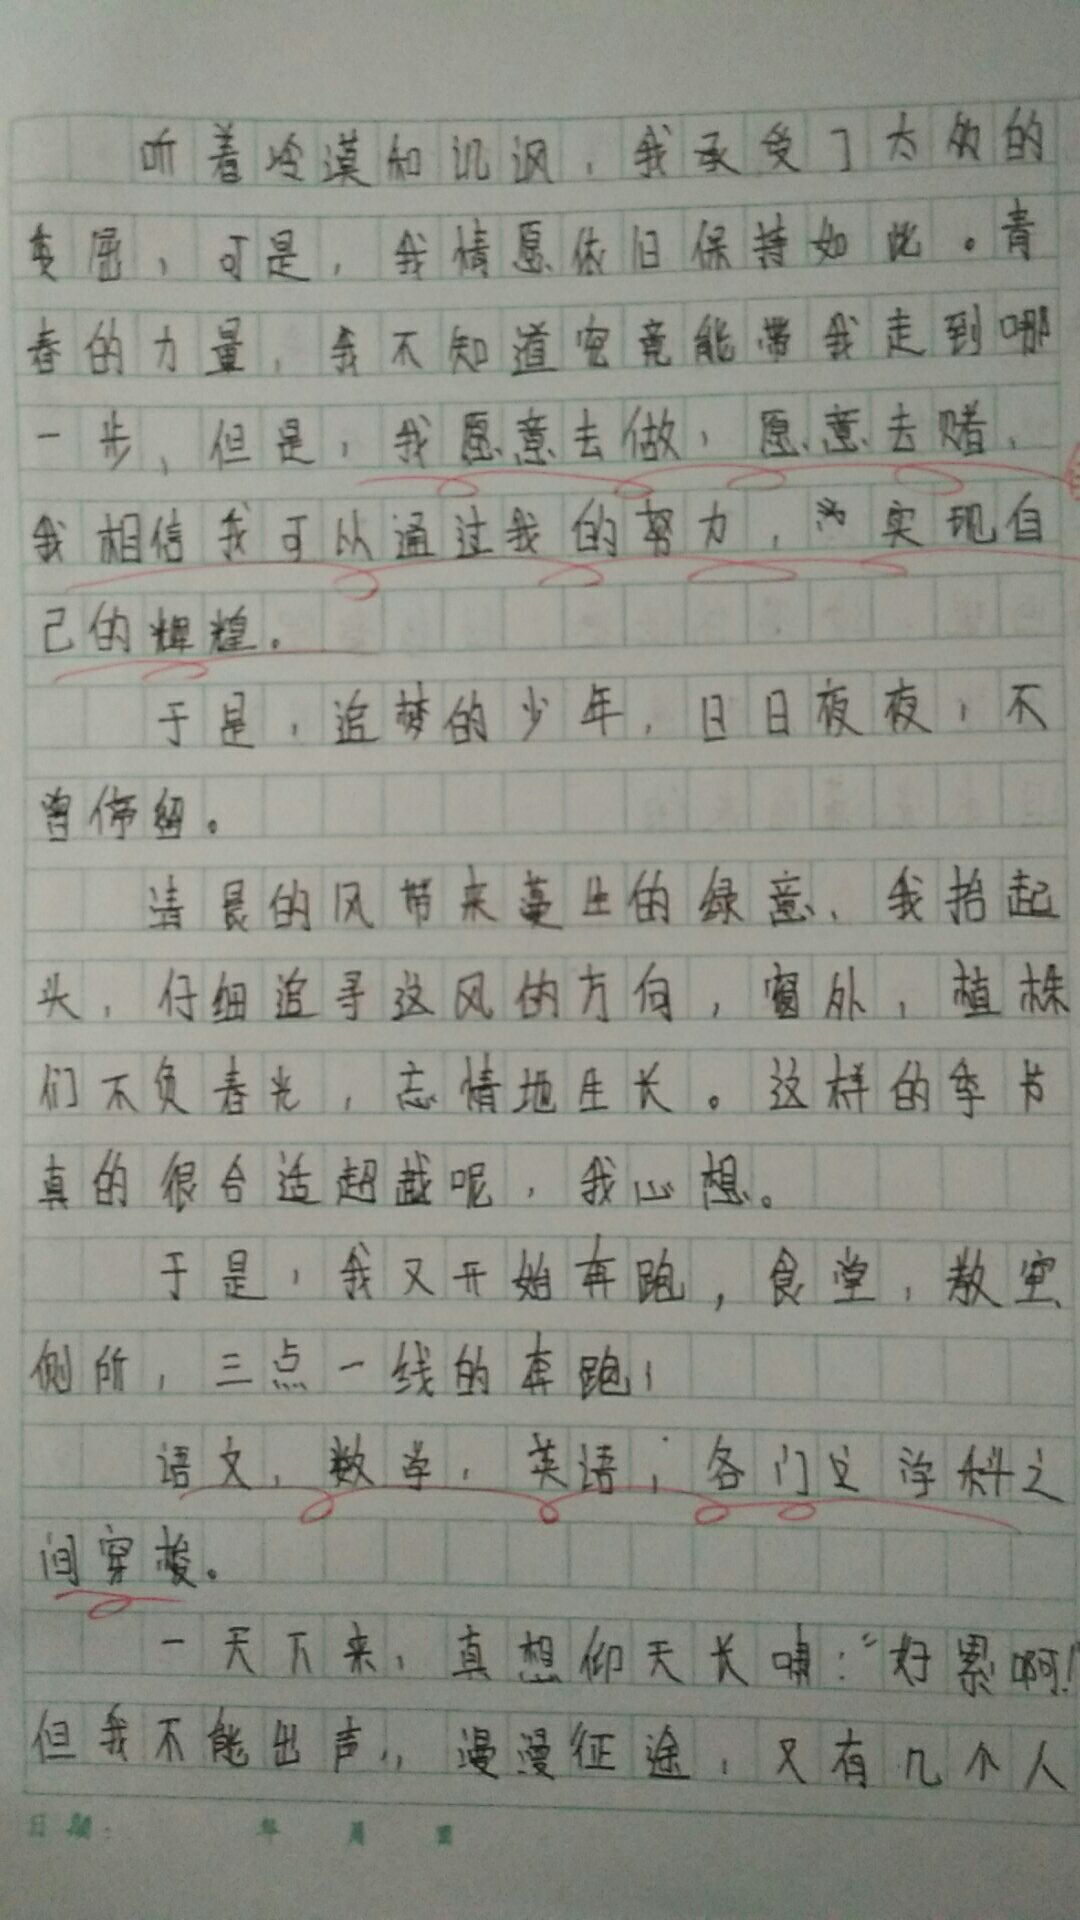 听着冷漠和讥讽，我承受了太多的
委屈，可是，我情愿依旧保持如此。青
春的力量，我不知道究竟能带我走到哪
一步，但是，我愿意去做，愿意去赌，
我相信我可以通过我的努力，实现自
己的辉煌。
于是，追梦的少年，日日夜夜，不
曾停留。
清晨的风带来蔓生的绿意，我抬起
头，仔细追寻这风的方向，窗外，植株
们不负春光，恣情地生长。这样的季节
真的很合适超越呢，我心想。
于是，我又开始奔跑，食堂，教室
侧所，三点一线的奔跑，
语文，数学，英语，各门文学科之
间穿梭。
一天下来，真想仰天长啸：“好累啊！”
但我不能出声，漫漫征途，又有几个人
日期： 年 月 日